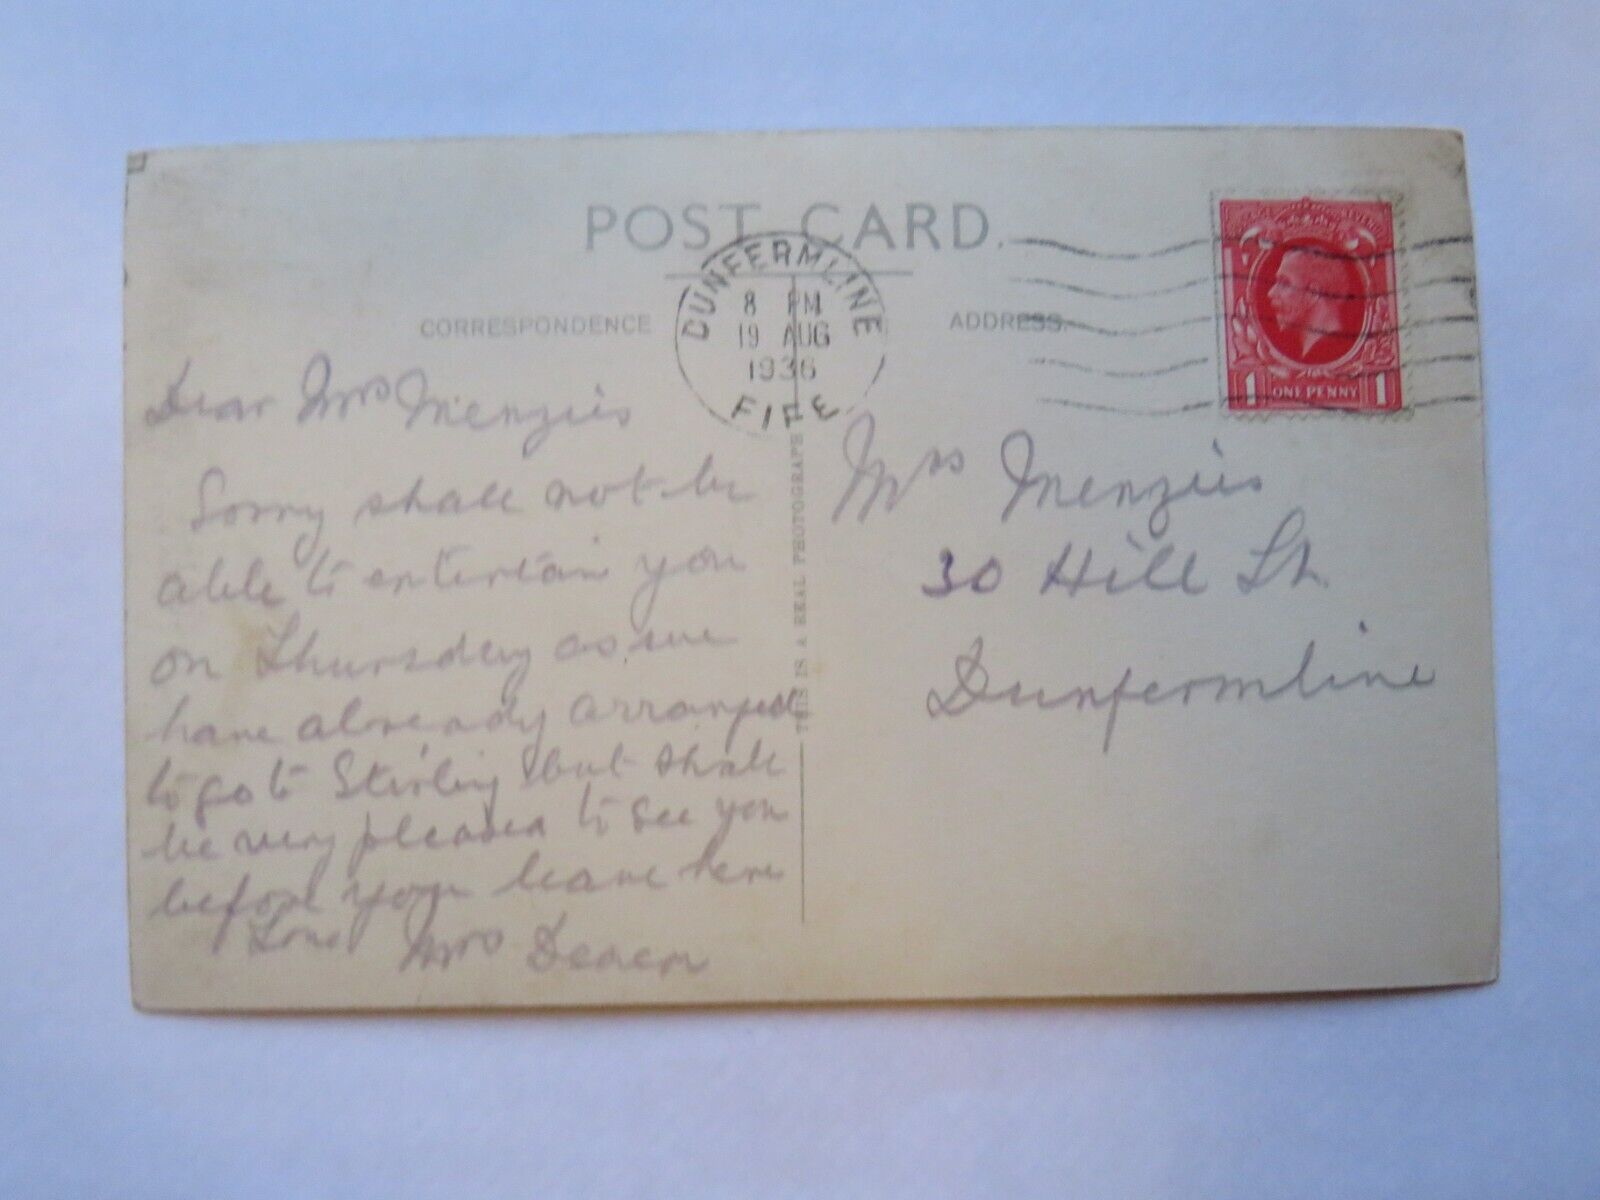 POST CARD.
CORRESPONDENCE
ADDRESS.
DUNFERMLINE
8 PM
19 AUG
1936
FIFE
ONE PENNY
1 1
THIS IS A REAL PHOTOGRAPH
Dear Mrs Menzies
Sorry shall not be
able to entertain you
on Thursday as we
have already arranged
to go to Stirling but shall
be very pleased to see you
before you leave here
Mrs
Mrs Menzies
30 Hill St.
Dunfermline